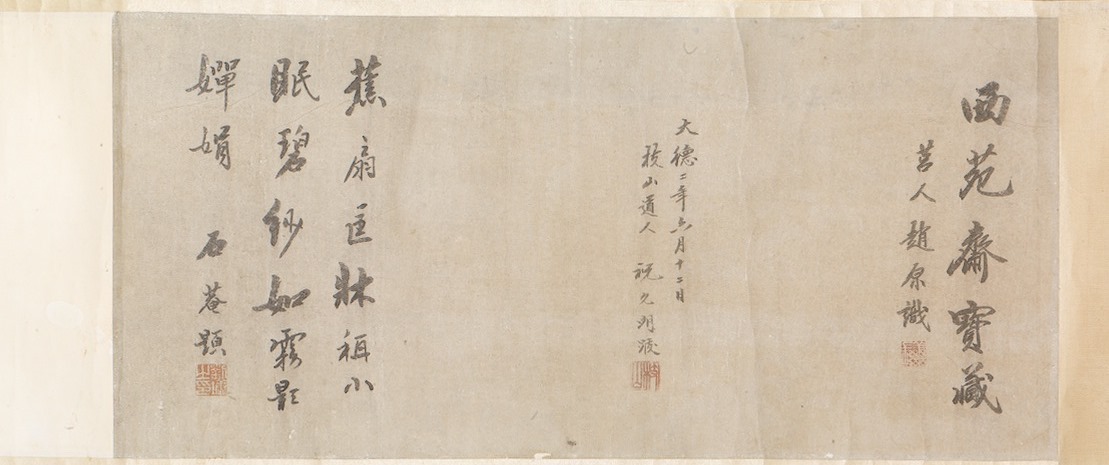 西苑齋寶藏
莒人趙原識
大德二年六月十二日
枝山道人祝允明跋
蕉扇匡牀袒小
眠碧紗如霧影
嬋娟
石菴題